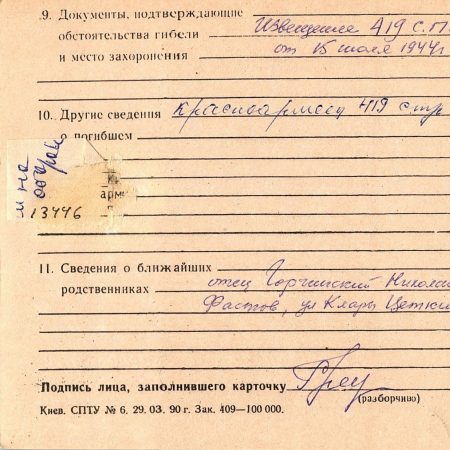 9. Документы, подтверждающие Извещение 419 с.п.
обстоятельства гибели от 15 июля 1944г
и место захоронения
10. Другие сведения Красноармеец 419 стр
о погибшем
м на
обграт
арм
13446
11. Сведения о ближайших отец Горчинский Никола
родственниках Фастов, ул Клары Цетки
Подпись лица, заполнившего карточку
(разборчиво)
Киев. СПТУ № 6. 29. 03. 90 г. Зак. 409—100 000.